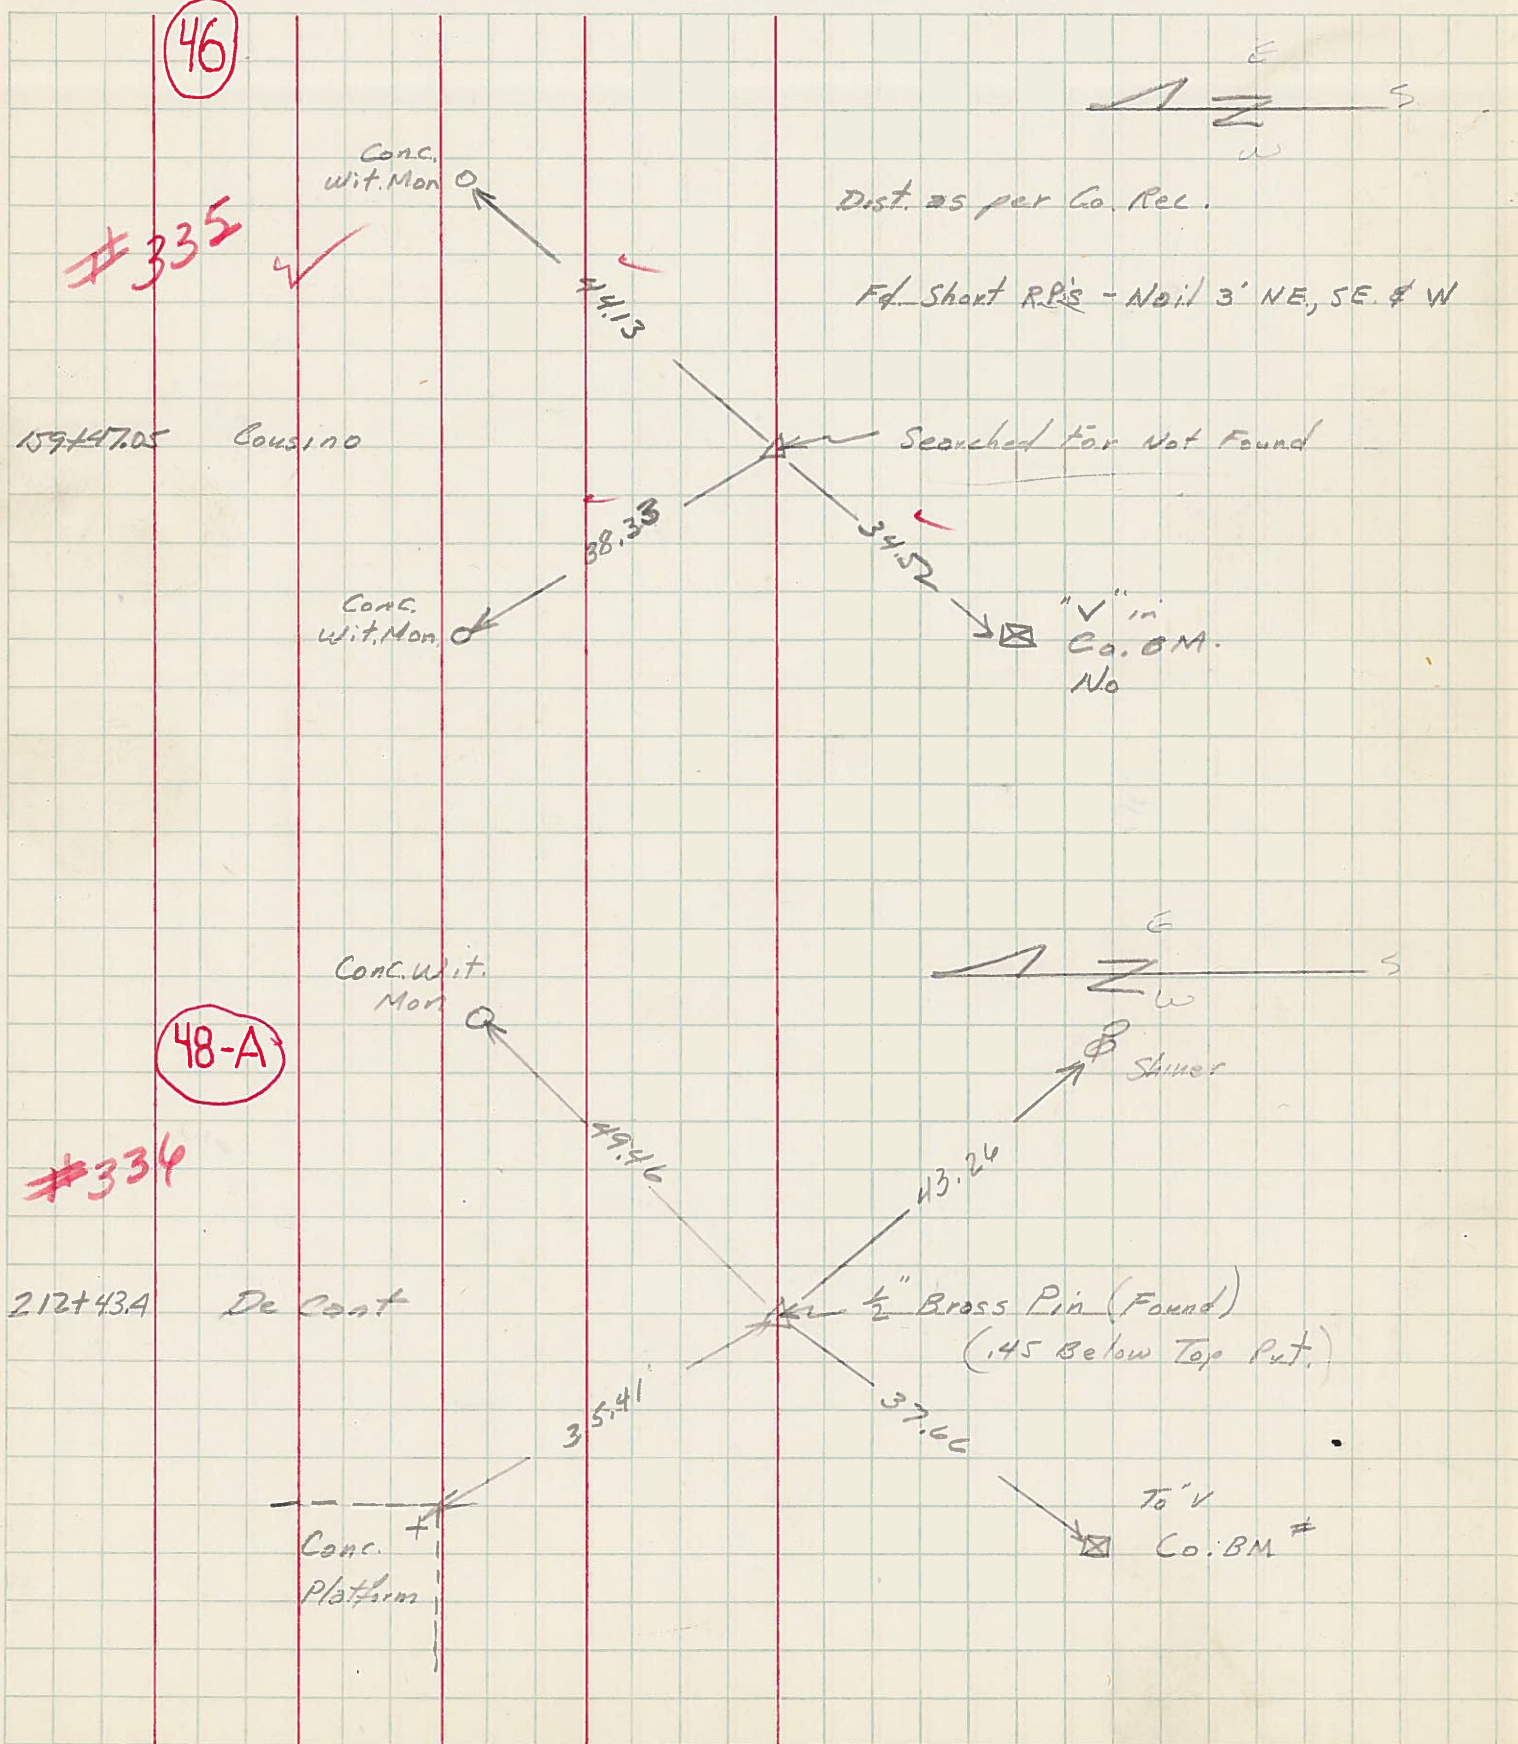 46
E
S
N
W
Conc.
Wit. Mon
Dist. as per Co. Rec.
#335
44.13
Fd. Short R.P.'s - Nail 3' NE, SE. & W
159+47.05 Cousino
Searched For Not Found
38.33
34.52
Conc.
Wit. Mon.
"V" in
Co. BM.
No
E
S
N
W
Conc. Wit.
Mon
48-A
Shiner
49.46
43.26
#334
212+43.4 De Cant
1/2" Brass Pin (Found)
(.45 Below Top Pvt.)
35.41
37.66
To "V
Co. BM #
Conc.
Platform